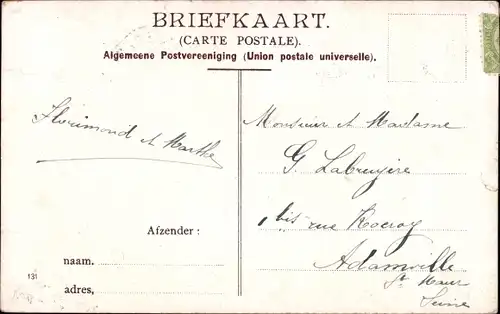 BRIEFKAART.
(CARTE POSTALE).
Algemeene Postvereeniging (Union postale universelle).
Florimond et Marthe
Monsieur et Madame
G. Labruyère
1 bis rue Rocroy
Adamville
St Maur
Seine
Afzender :
naam.
adres,
131